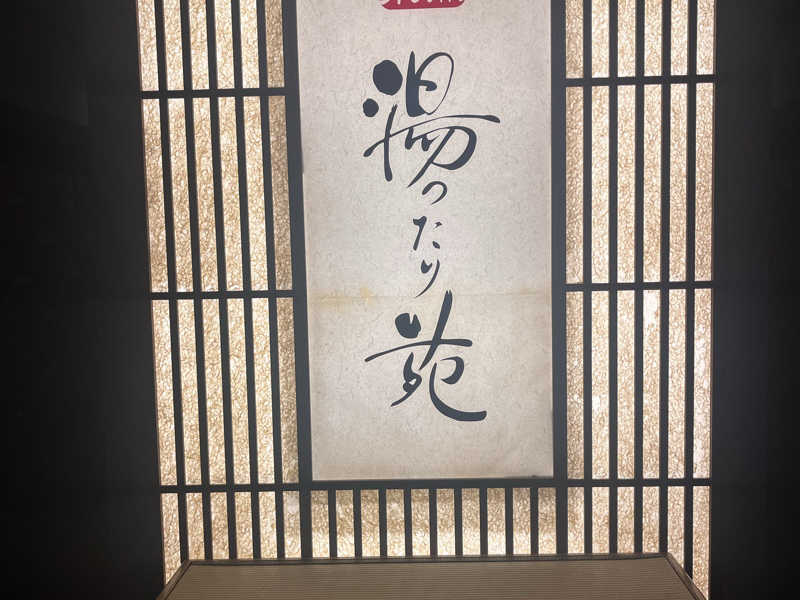 湯ったり苑